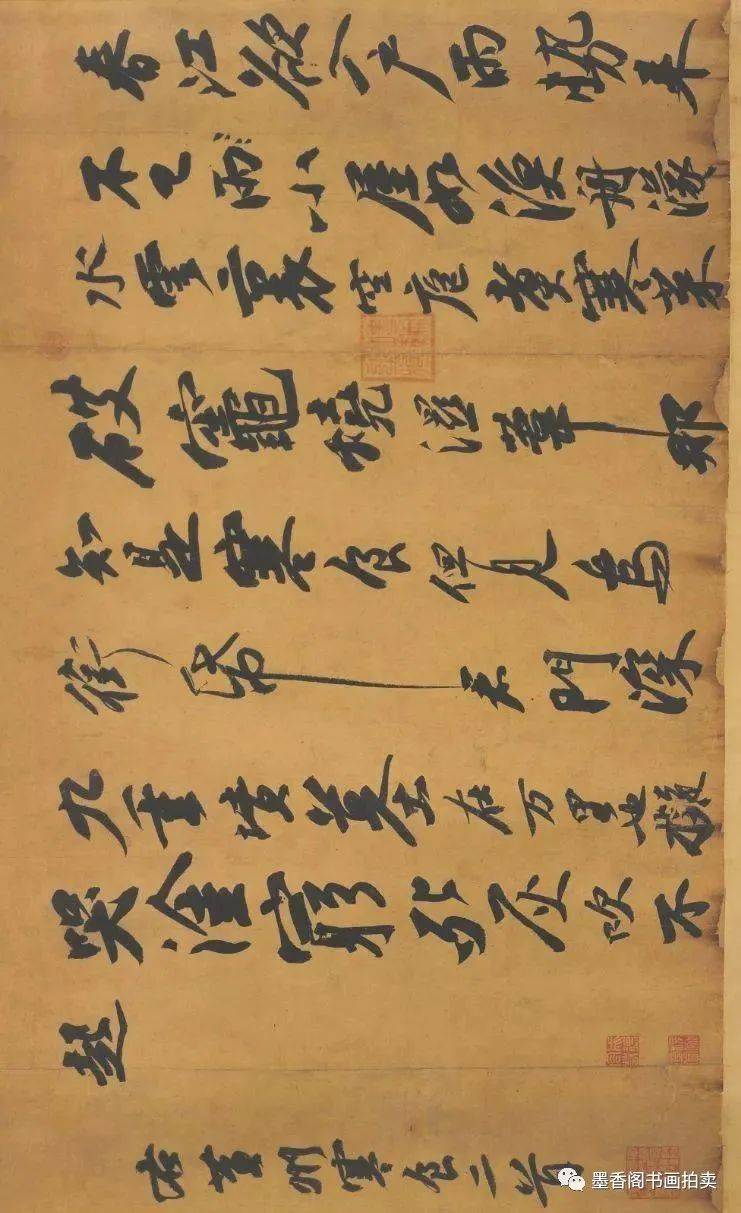 春江欲入戶雨勢來
不已雨小屋如漁舟濛〻
水雲裏空庖煮寒菜
破竈燒濕葦那
知是寒食但見烏
銜帋君門深
九重墳墓在万里也擬
哭塗窮死灰吹不
起
右黃州寒食二首
墨香阁书画拍卖